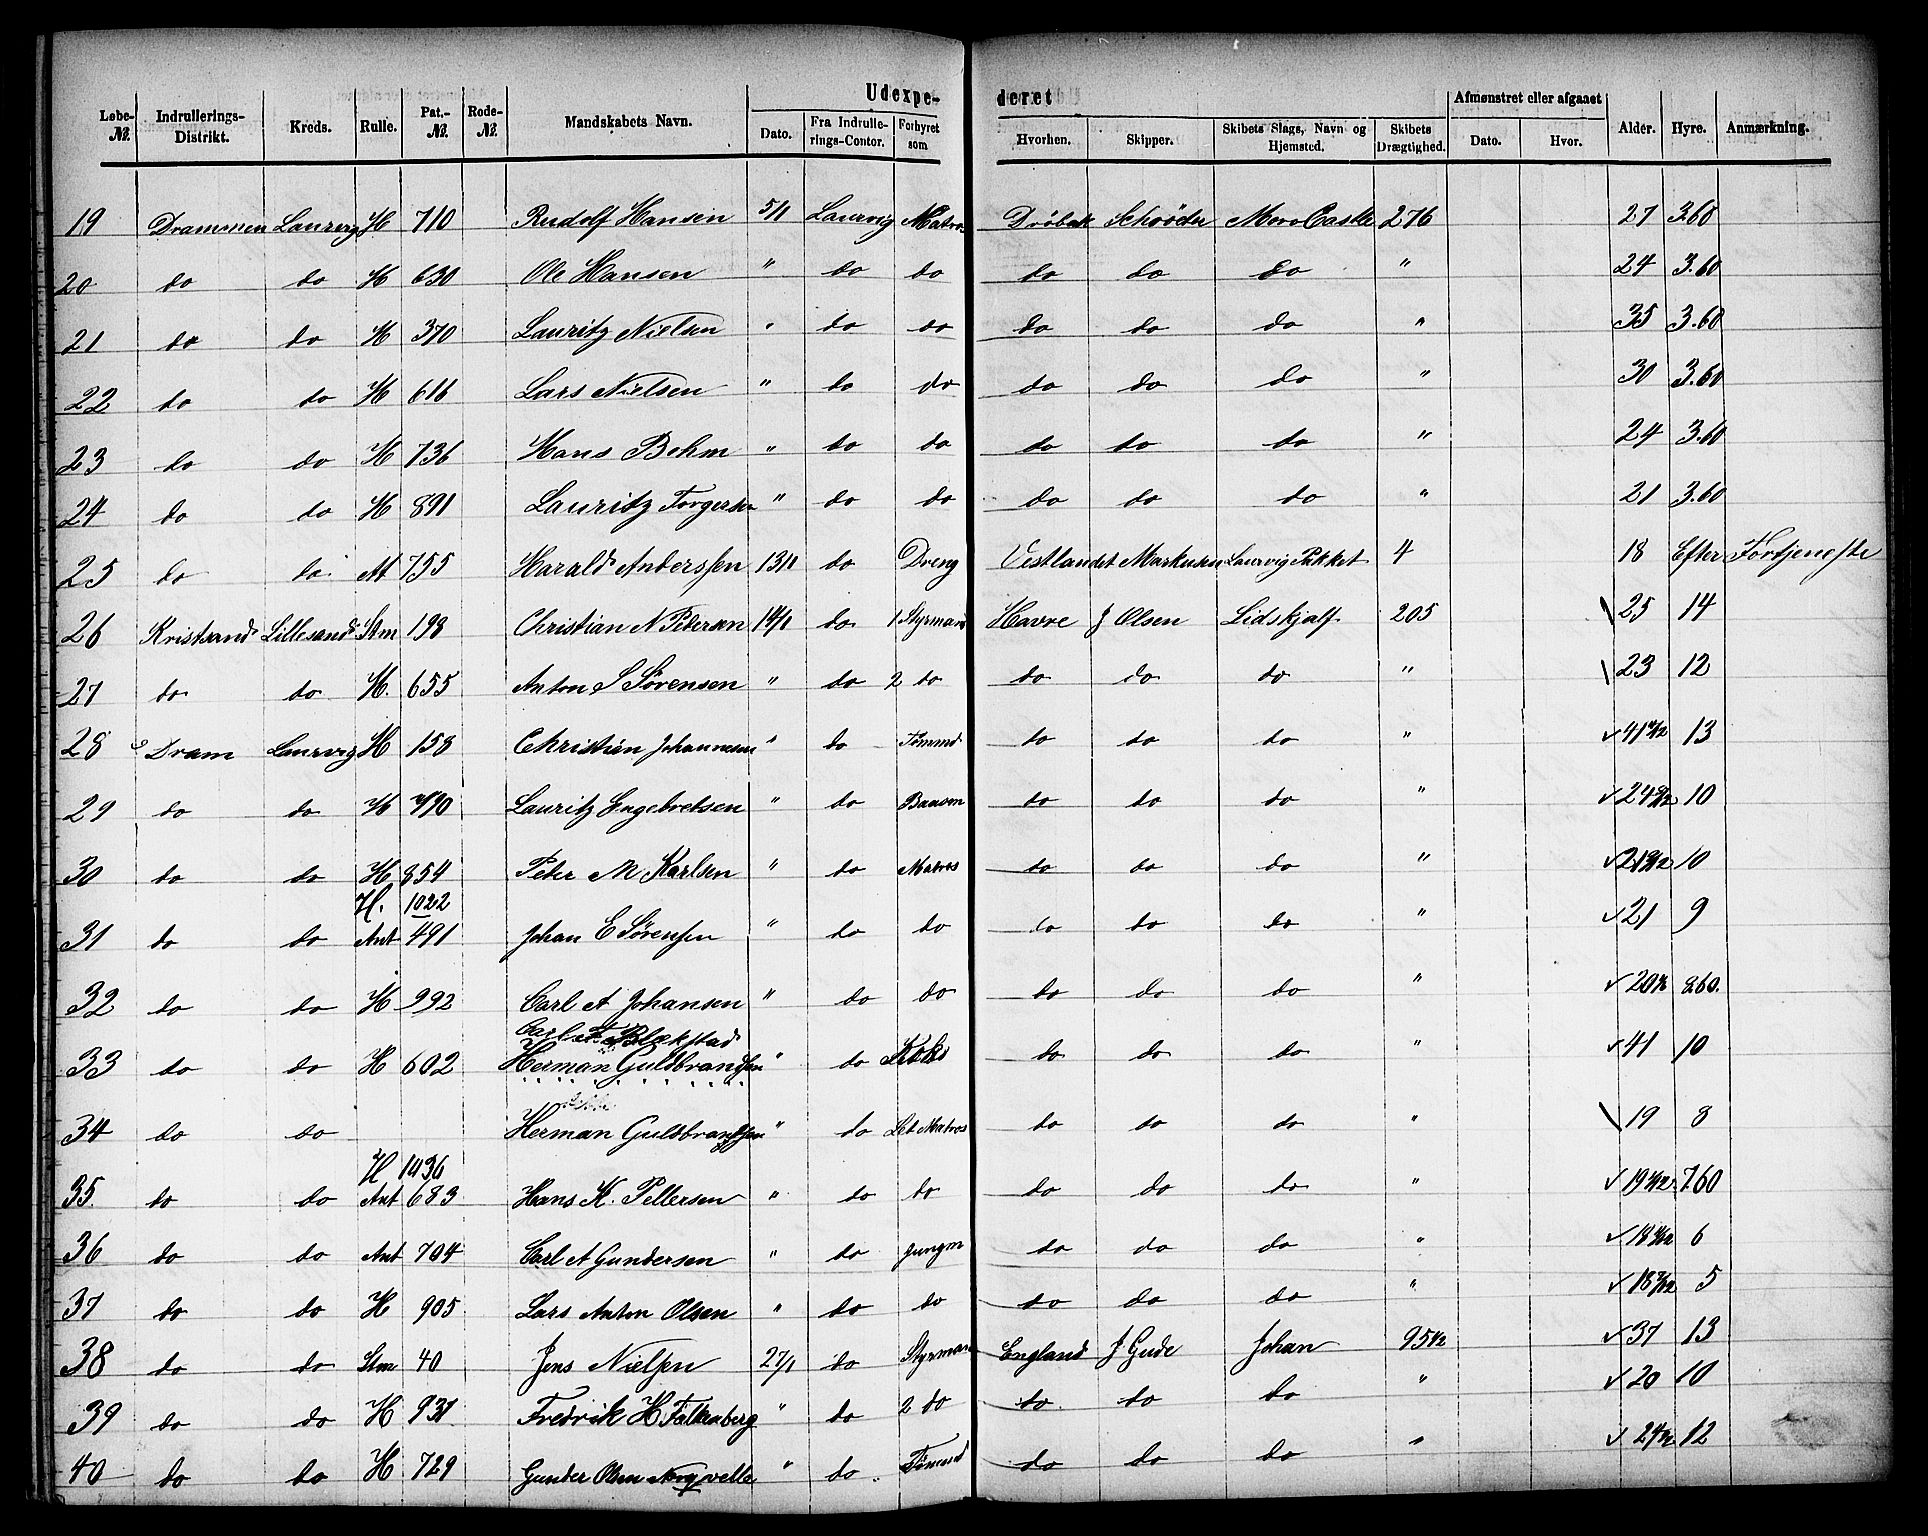 Udexpe- deret
Løbe-No. Indrullerings-Distrikt. Kreds. Rulle. Pat.-No. Rode-No. Mandskabets Navn. Dato. Fra Indrullerings-Contor. Forhyret som Hvorhen. Skipper. Skibets Slags, Navn og Hjemsted. Skibets Drægtighed. Afmønstret eller afgaaet Dato. Hvor. Alder. Hyre. Anmærkning.
19 Drammen Laurvig H 710 Rudolf Hansen 5/1 Laurvig Matros Drøbak Schrøder Moro Castle 276 27 3.60
20 do do H 630 Ole Hansen " do do do do do " 24 3.60
21 do do H 370 Lauritz Nielsen " do do do do do " 35 3.60
22 do do H 616 Lars Nielsen " do do do do do " 30 3.60
23 do do H 736 Hans Behm " do do do do do " 24 3.60
24 do do H 891 Lauritz Torgersen " do do do do do " 21 3.60
25 do do At 755 Harald Anderssen 13/1 do Dreng Vestlandet Markusen Laurvig Pakket 4 18 Efter Fortjeneste
26 Kristsand Lillesand Stm 198 Christian N Pedersen 14/1 do 1 Styrmand Havre J Olsen Lidskjalf 205 \ 25 14
27 do do H. 655 Anton S Sørensen " do 2 do do do do " \ 23 12
28 Dram Laurvig H 158 Christian Johannesen " do Tømmd do do do " ✓ 41 13
29 do do H 790 Lauritz Engebretsen " do Baasm do do do " ✓ 24 10
30 do do H 854 Peter M Karlsen " do Matros do do do " ✓ 21 10
H. 1022
31 do do Ant 491 Johan E Sørensen " do do do do do " ✓ 21 9
32 do do H 992 Carl A Johansen " do do do do do " ✓ 20 8.60.
Carl
33 do do H 602 Herman Guldbrandsen " do Koks do do do " ✓ 41 10
34 do do Herman Guldbrandsen " do Let Matros do do do " \ 19 8
H 1436
35. do do Ant 683 Hans K. Pettersen " do do do do do " ✓ 19 7.60
36 do do Ant 704 Carl A Gundersen " do jungm do do do " ✓ 18 6
37 do do H 905 Lars Anton Olsen " do do do do do " ✓ 18 5
38 do do Stm 40 Jens Nielsen 27/1 do Styrman England J Gude Johan 95 1/2 ✓ 37 13
39 do do H 931 Fredrik H Falkenberg " do 2 do do do do " ✓ 20 10
40 do do H 729 Gunder Olsen " do Tømmd do do do " ✓ 24 12